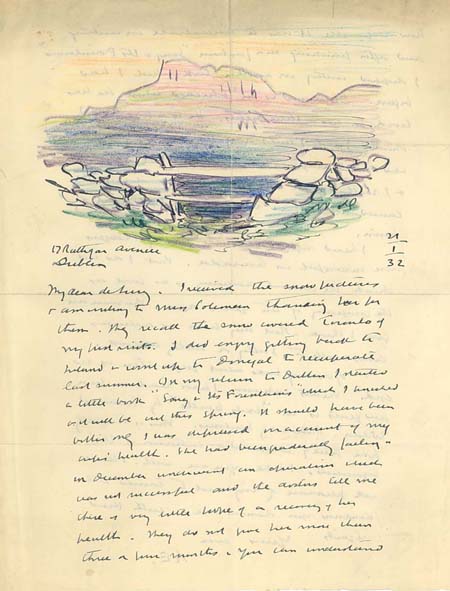 17 Rathgar Avenue
Dublin
21
1
32
My dear de Lury. I received the snow pictures
& am writing to Miss Coleman thanking her for
them. They recall the snow covered Toronto of
my first visits. I did enjoy getting back to
Ireland & went up to Donegal to recuperate
last summer. On my return to Dublin I started
a little book "Song & Its Fountains" which I finished
& it will be out this Spring. It should have been
better only I was depressed on account of my
wife's health. She had been gradually failing &
in December underwent an operation which
was not successful and the doctors tell me
there is very little hope of a recovery of her
health. They do not give her more than
three or four months & you can understand